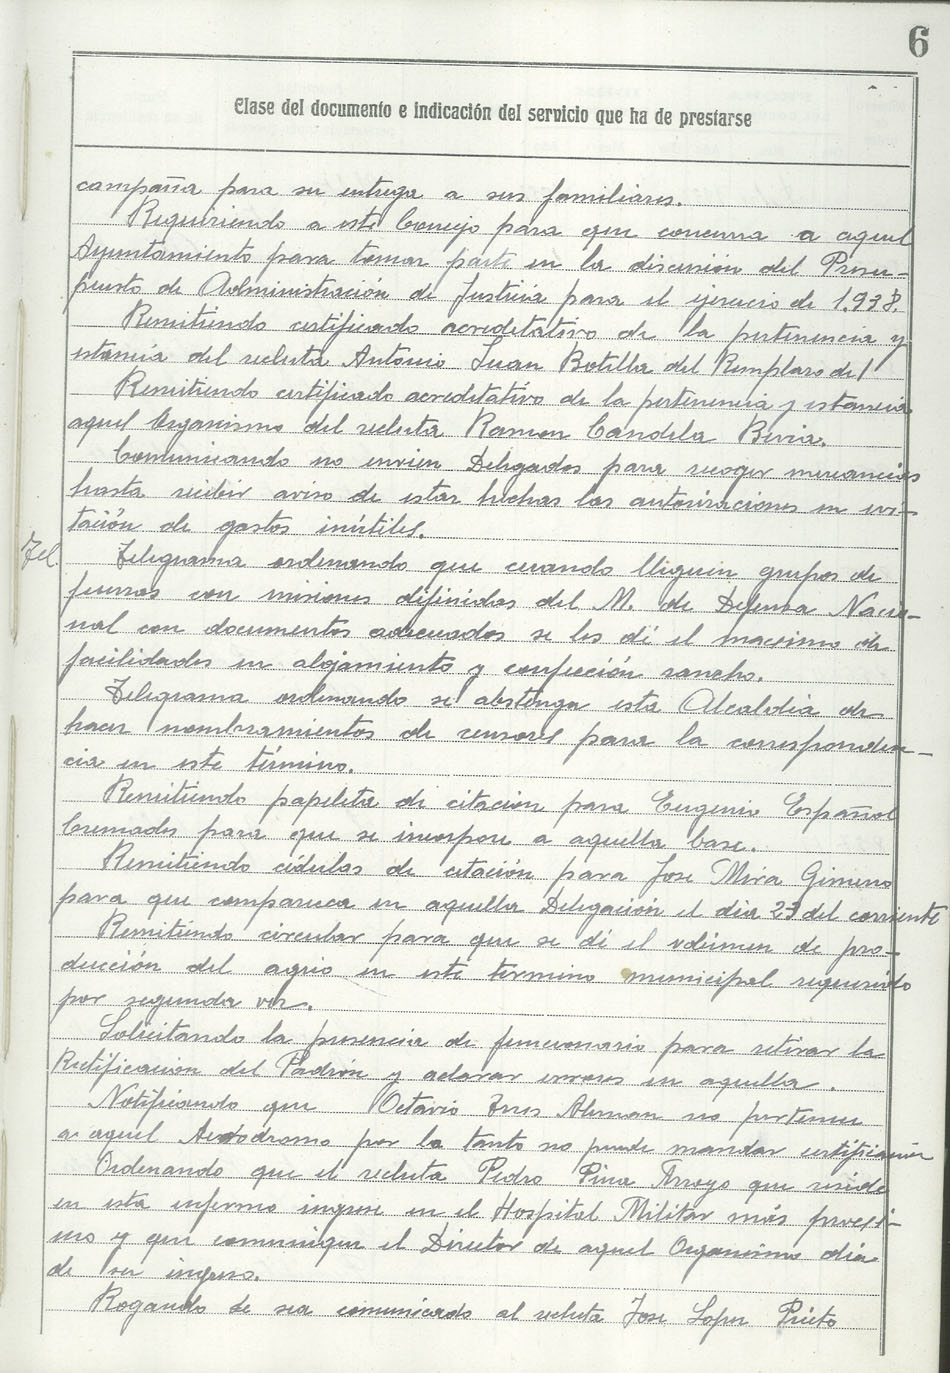 6
Clase del documento e indicación del servicio que ha de prestarse
campaña para su entrega a sus familiares.
Requiriendo a este Consejo para que concurra a aquel
Ayuntamiento para tomar parte en la discusión del Presu-
puesto de Administración de Justicia para el ejercicio de 1.938.
Remitiendo certificado acreditativo de la pertenencia y
estancia del recluta Antonio Juan Botella del Remplazo de 1
Remitiendo certificado acreditativo de la pertenencia y estancia
aquel Organismo del recluta Ramon Candela Bevia.
Comunicando no envien Delegados para recoger mercancias
hasta recibir aviso de estar hechas las autorizaciones en evi-
tación de gastos inútiles.
Tel.
Telegrama ordenando que cuando lleguen grupos de
fuerzas con misiones difinidas del M. de Defensa Nacio-
nal con documentos adecuados se les dé el maximo de
facilidades en alojamiento y confección rancho.
Telegrama ordenando se abstenga esta Alcaldia de
hacer nombramientos de censores para la corresponden-
cia en este término.
Remitiendo papeleta de citación para Eugenio Español
Cremades para que se incorpore a aquella base.
Remitiendo cédulas de citación para Jose Mira Gimeno
para que comparezca en aquella Delegación el dia 23 del corriente
Remitiendo circular para que se dé el volúmen de pro-
ducción del agrio en este termino municipal requerido
por segunda vez.
Solicitando la presencia de funcionario para retirar la
Rectificación del Padrón y aclarar errores en aquella.
Notificando que Octavio Aleman no pertenece
a aquel Aerodromo por lo tanto no puede mandar certificación
Ordenando que el recluta Pedro Pina Arroyo que reside
en esta enfermo ingrese en el Hospital Militar más proxi-
mo y que comunique el Director de aquel Organismo dia
de su ingreso.
Rogando le sea comunicado al recluta Jose Lopez Prieto